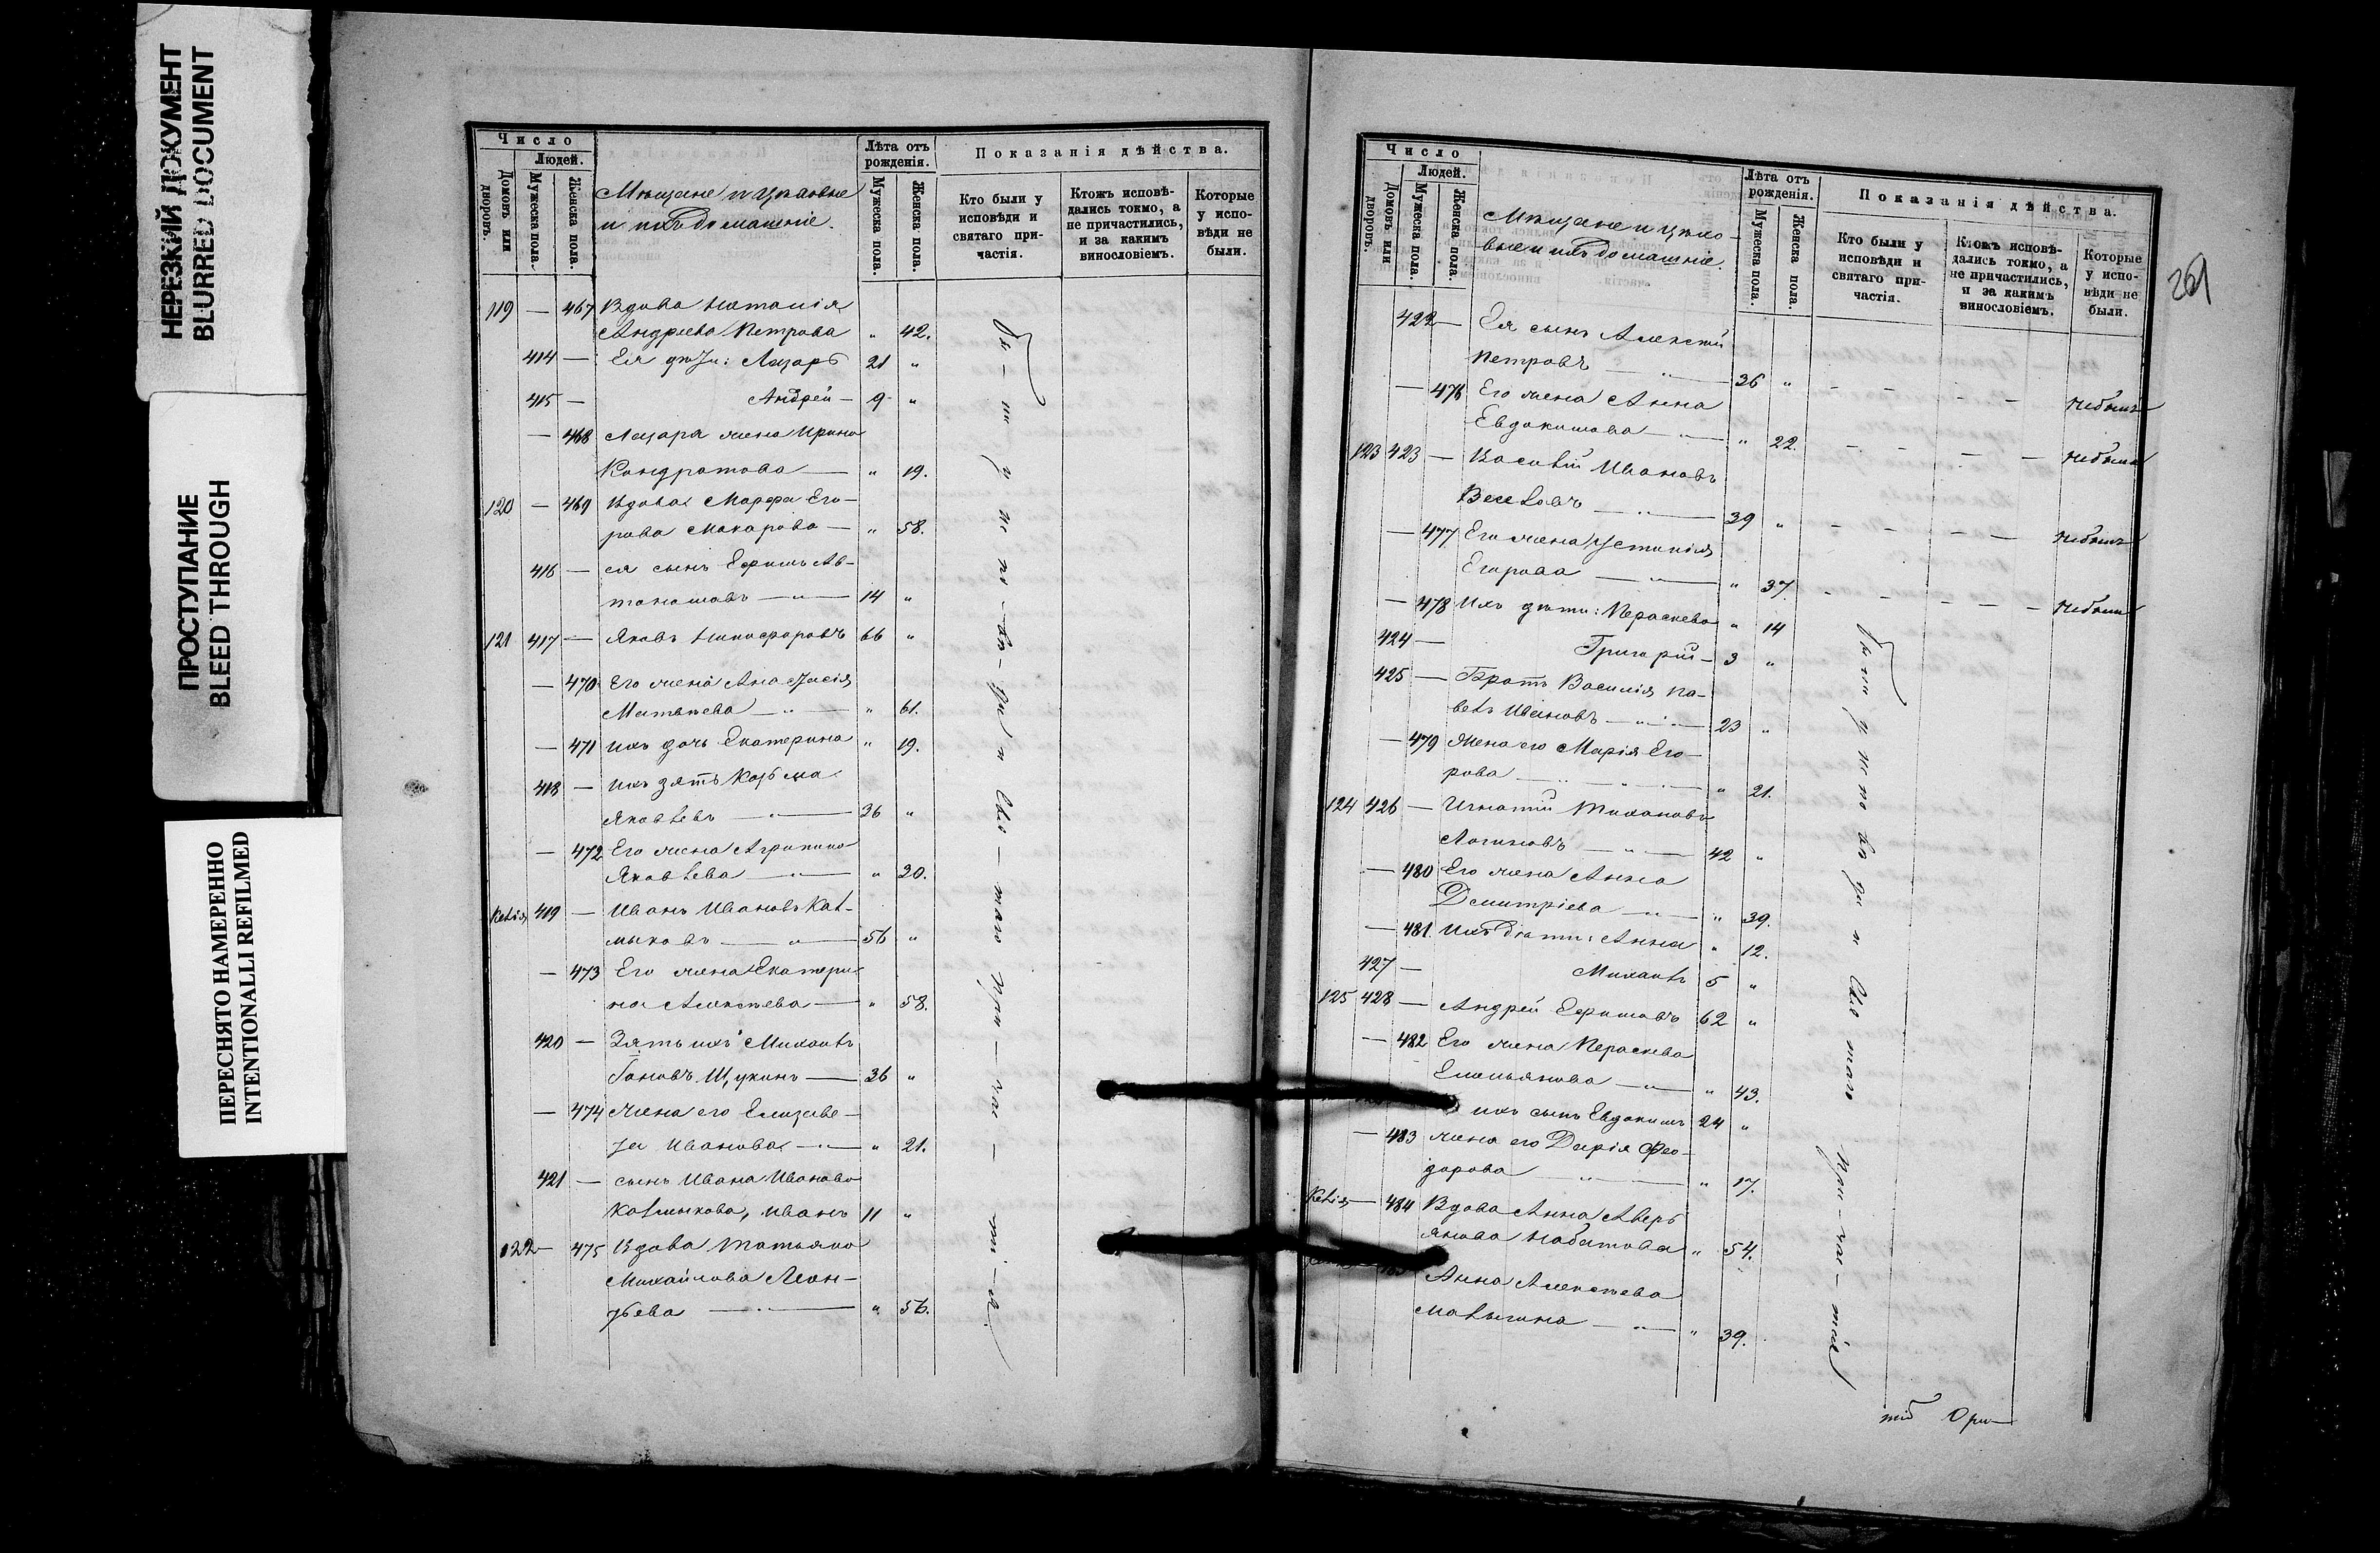 НЕРЕЗКИЙ ДОКУМЕНТ
BLURRED DOCUMENT
ПРОСТУПАНИЕ
BLEED THROUGH
ПЕРЕСНЯТО НАМЕРЕННО
INTENTIONALLI REFILMED
Число
Людей.
Домовъ или дворовъ.
Мужеска пола.
Женска пола.
Мѣщане и цеховые
и ихъ домашніе.
Лѣта отъ рожденія.
Мужеска пола.
Женска пола.
Показанія дѣйства.
Кто были у исповѣди и святаго причастія.
Ктожъ исповѣдались токмо, а не причастились, и за какимъ винословіемъ.
Которые у исповѣди не были.
119 — 467 Вдова Наталія
Андреева Петрова " 42.
414 — Ея дѣти: Лазарь 21 "
415 — Андрей — 9 "
— 468 Лазаря жена Ирина
Кондратова — " 19.
120 — 469 Вдова Марфа Его-
рова Макарова — " 58.
416 — ея сынъ Ефимъ Ав-
тономовъ — " — 14 "
121 417 — Яковъ Никифоровъ 66 "
— 470 Его жена Анастасія
Матвѣева — " — " 61.
— 471 ихъ дочь Екатерина " 19.
418 — ихъ зять Козьма
Яковлевъ — " — 36 "
— 472 Его жена Агрипина
Яковлева — " — " 20.
Келія 419 — Иванъ Ивановъ Кал-
мыковъ — " — 56 "
— 473 Его жена Екатери-
на Алексѣева — " 58.
420 — Зять ихъ Михаилъ
Щукинъ — 36 "
— 474 Жена его Елизаве-
та Иванова — " — " 21.
421 — сынъ Ивана Иванова
Калмыкова, Иванъ 11 "
122 — 475 Вдова Татьяна
Михайлова Леон-
тьева — " — " 56.
бы-ли у испо-вѣ-ди и Свя-таго При-час-ті-я.
Число
Людей.
Домовъ или дворовъ.
Мужеска пола.
Женска пола.
Мѣщане и цехо-
вые и ихъ домашніе.
Лѣта отъ рожденія.
Мужеска пола.
Женска пола.
Показанія дѣйства.
Кто были у исповѣди и святаго причастія.
Ктожъ исповѣдались токмо, а не причастились, и за какимъ винословіемъ.
Которые у исповѣди не были.
422 — Ея сынъ Алексѣй
Петровъ — " — 36 " небылъ
— 476 Его жена Анна
Евдокимова — " — " 22. небыла
123 423 — Василій Ивановъ
— " — 39 " небылъ
— 477 Его жена Устинія
Егорова — " — " 37. небыла
— 478 Ихъ дѣти: Параскева " 14
424 — Григорій — 3 "
425 — Братъ Василія Па-
велъ Ивановъ — " — 23 "
— 479 Жена его Марія Его-
рова — " — " 21.
124 426 — Игнатій Тихоновъ
Логиновъ — " — 42 "
— 480 Его жена Анна
Дмитріева — " — " 39.
— 481 Ихъ дѣти: Анна " 12.
427 — Михаилъ 5 "
125 428 — Андрей Ефимовъ 62 "
— 482 Его жена Параскева
Емельянова — " — " 43.
ихъ сынъ Евдокимъ 24 "
— 483 жена его Дарія Фео-
дорова — " — " 17.
Келія — 484 Вдова Анна Аверь-
янова Набатова " 54.
Анна Алексѣева
Малыгина — " — " 39.
были у исповѣди и Святаго При-час-тія
261